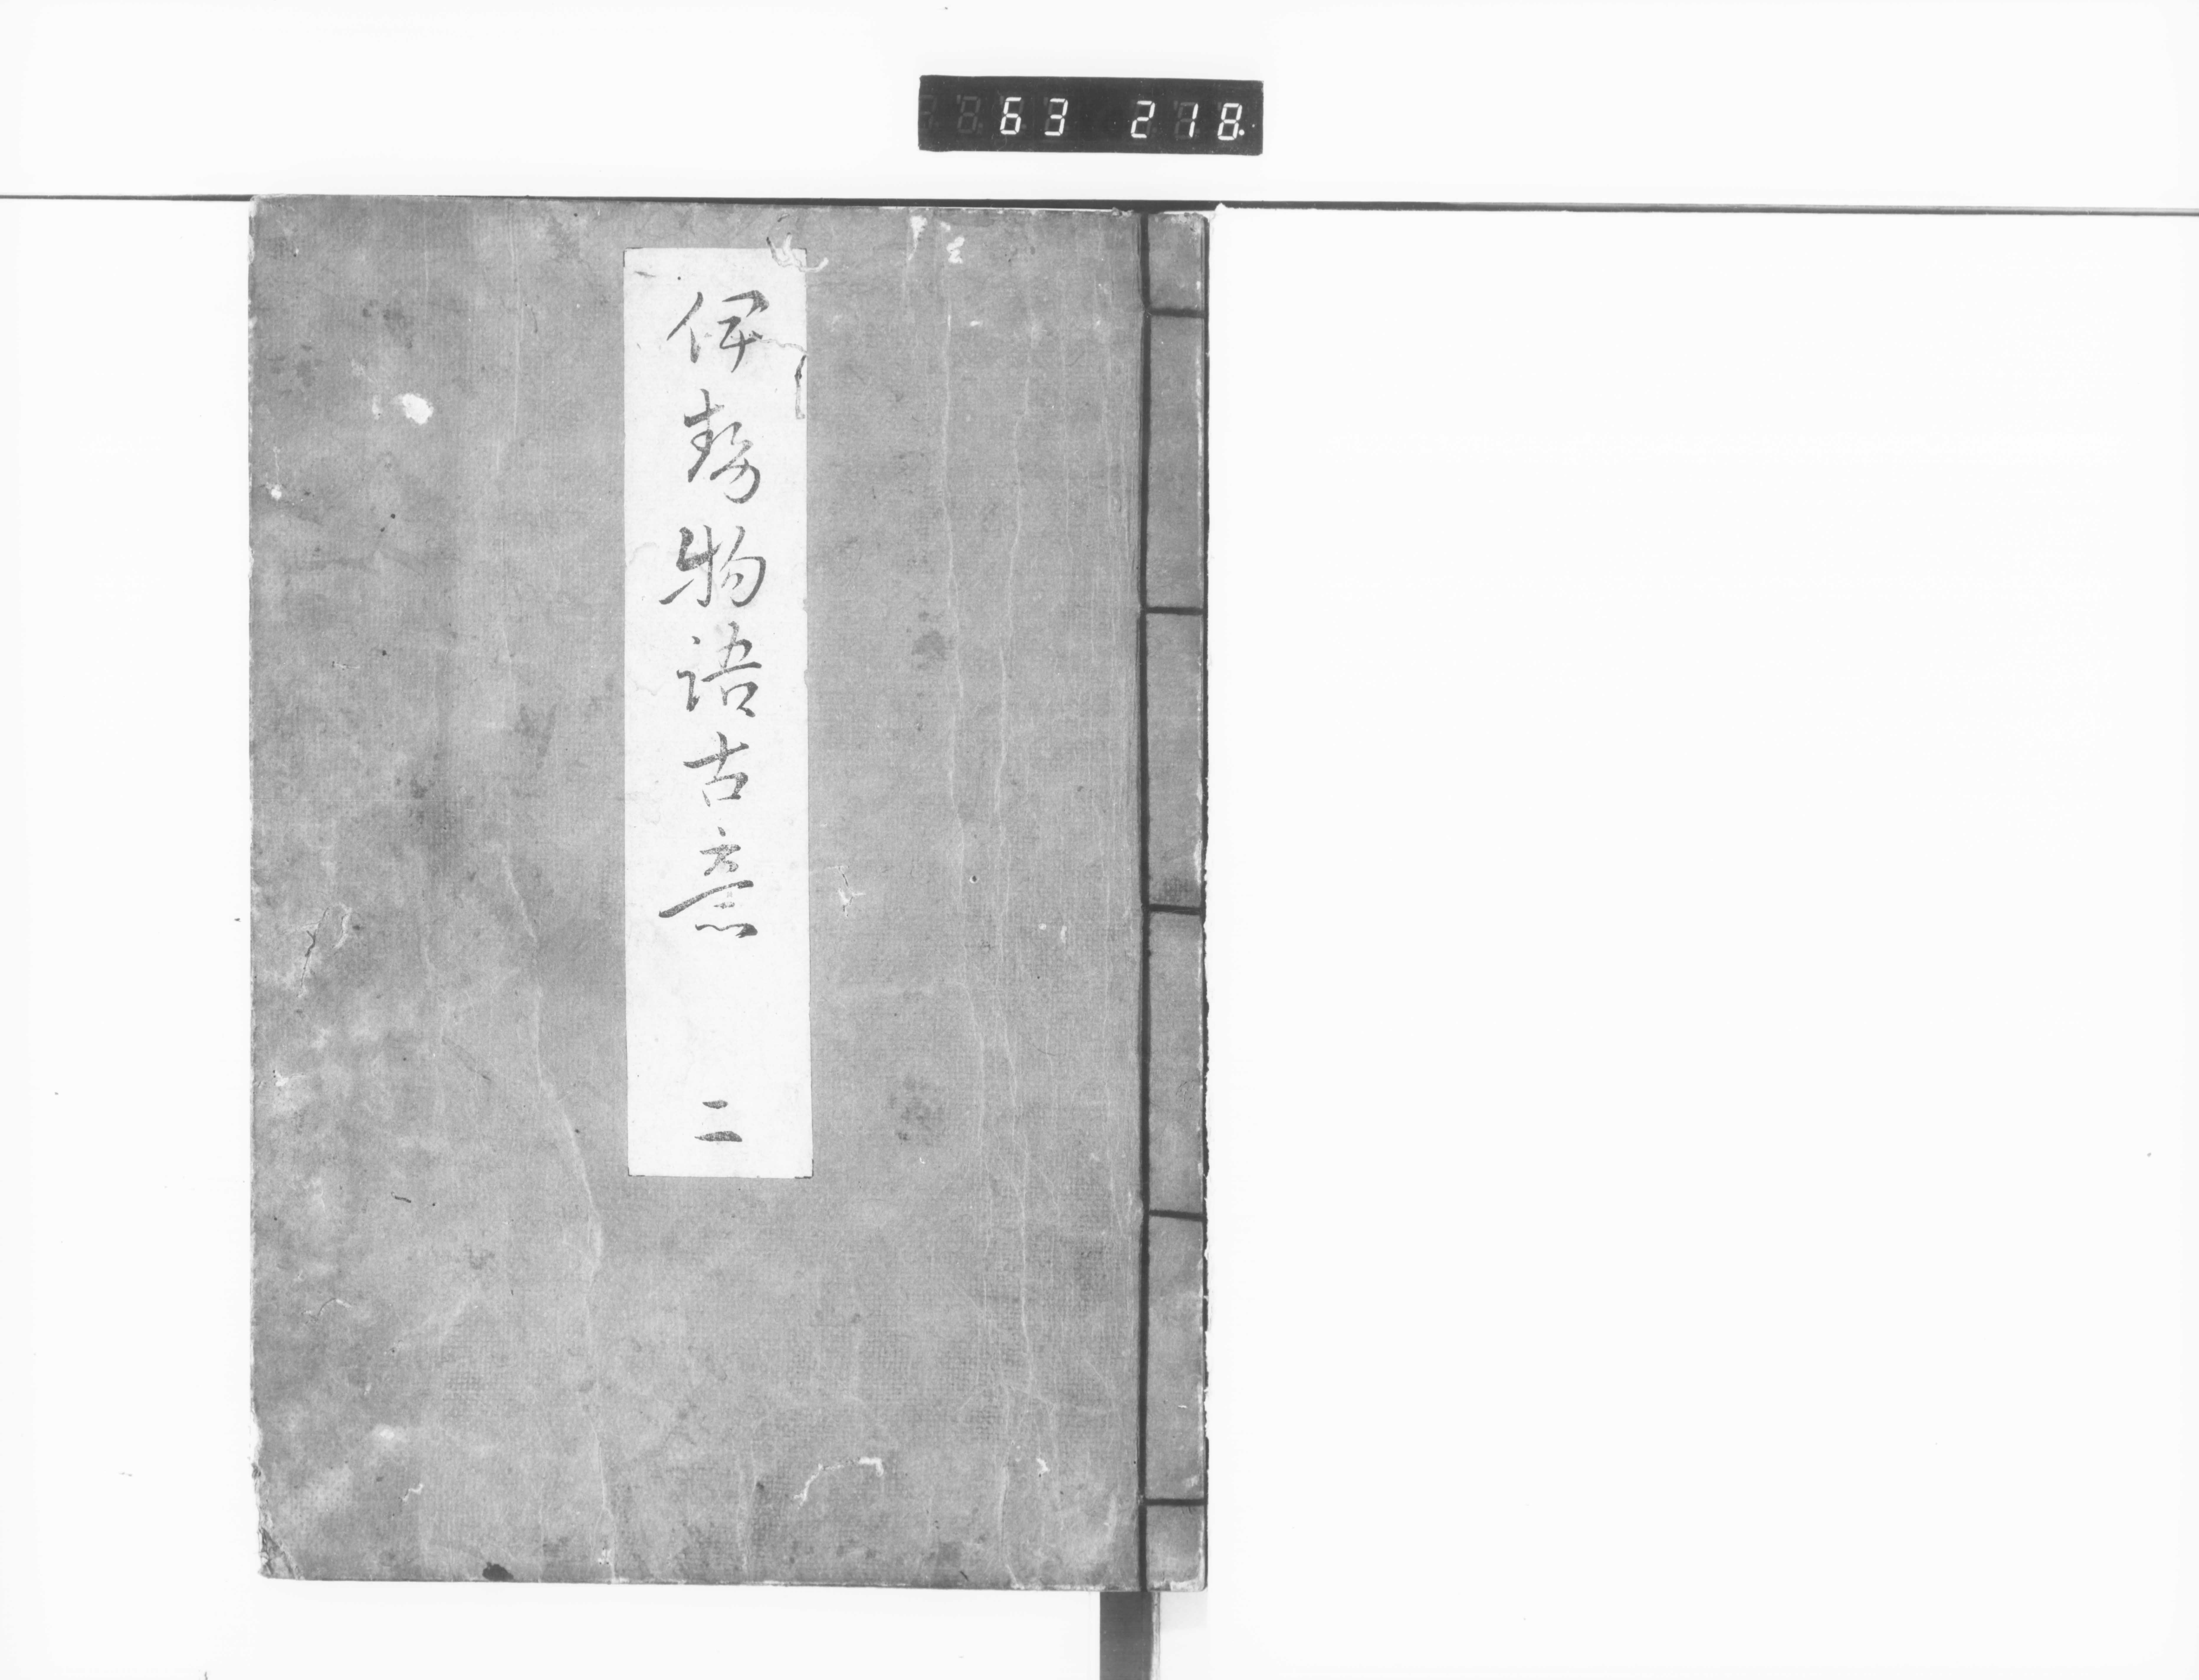 63 218
伊勢物語古意 二